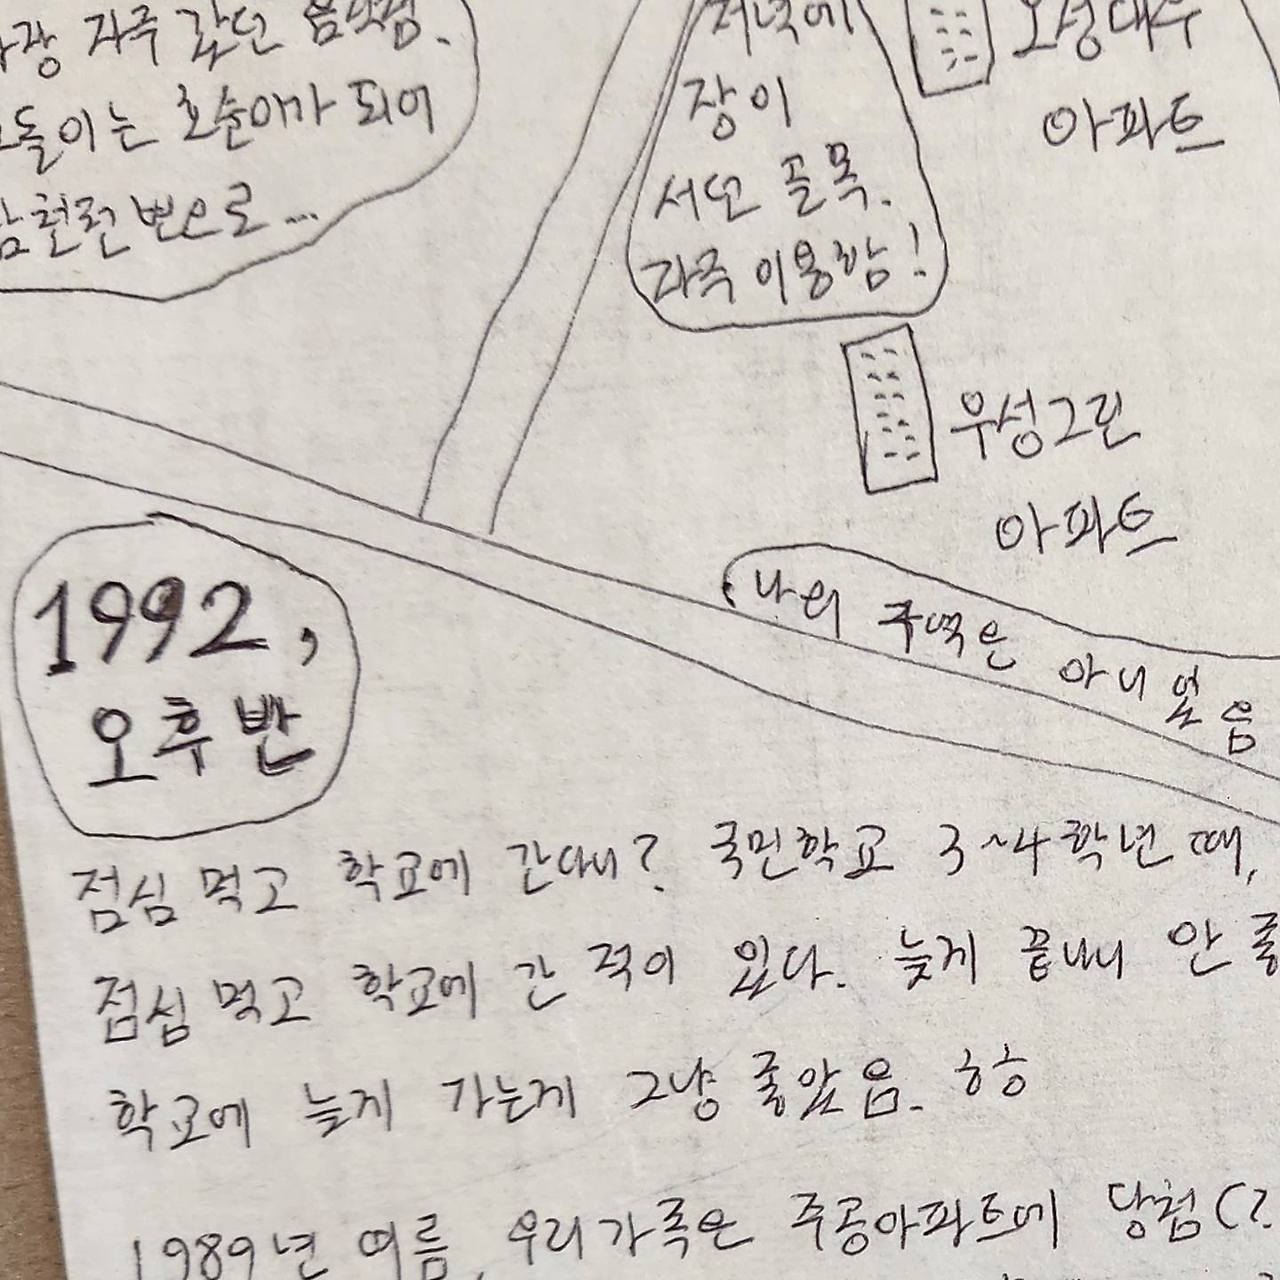 자주 갔던 음식점.
호순이가 되어
뻔으로...
저녁에
장이
서던 골목.
자주 이용함!
오성대우
아파트
우성그린
아파트
나의 구역은 아니었음
1992,
오후반
점심 먹고 학교에 간다니? 국민학교 3~4학년 때,
점심 먹고 학교에 간 적이 있다. 늦게 끝나니 안 좋
학교에 늦게 가는게 그냥 좋았음. ㅎㅎ
1989년 여름, 우리가족은 주공아파트에 당첨(?